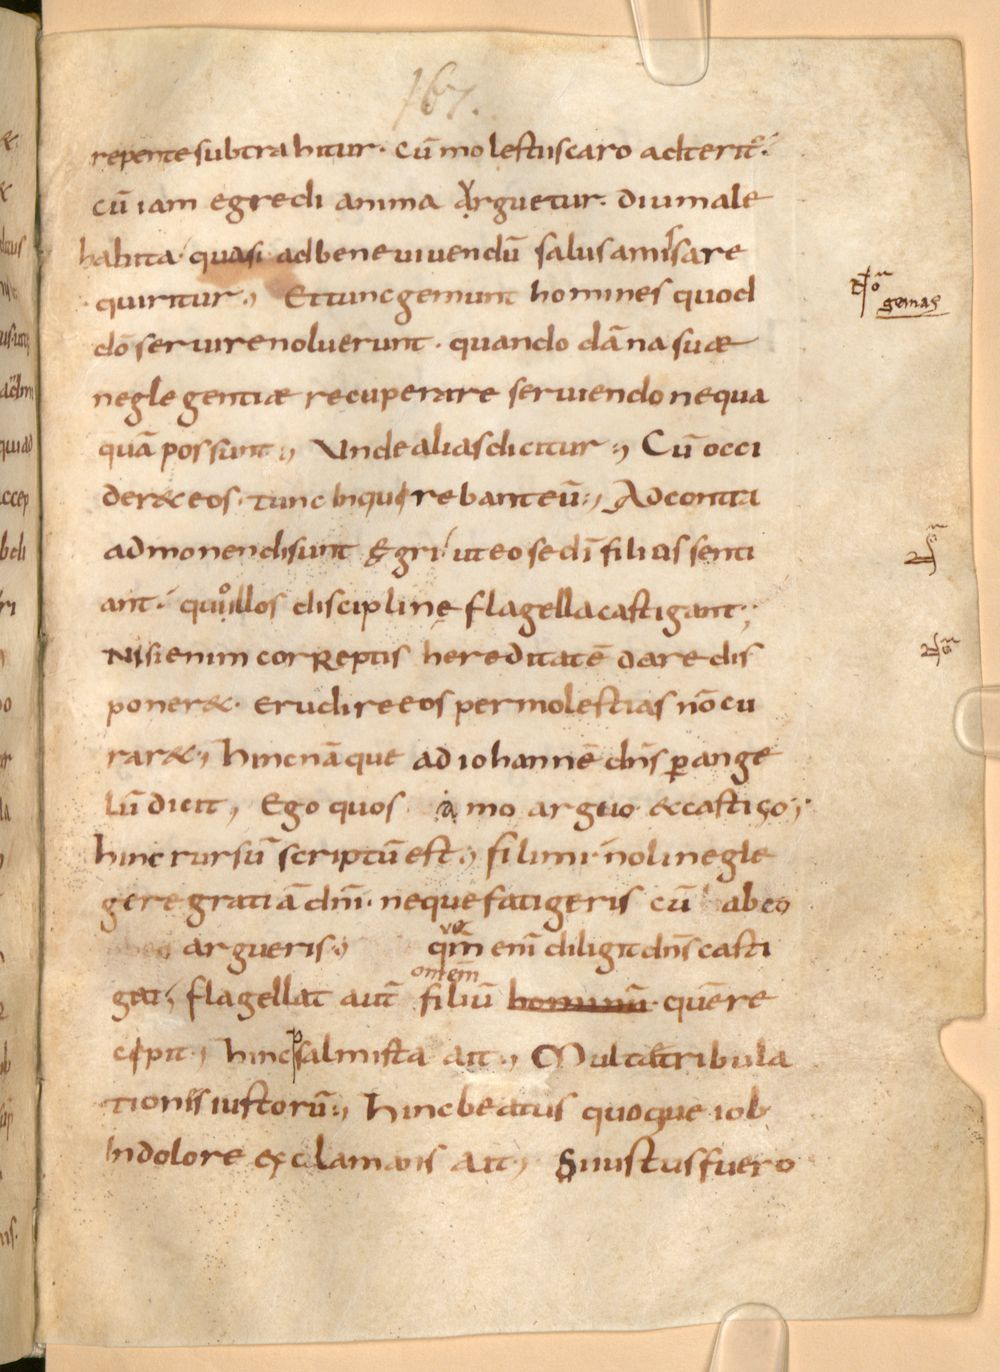 167.
repente subtrahitur. cū molestus caro adterit᷑.
cū iam egredi anima Arguetur. diu male
habita quasi ad bene uiuendū salus amissa re
quiritur, Et tunc gemunt homines quod
dō seruire noluerunt. quando dāna suae
neglegentiae recuperare seruiendo nequa
quā possunt, Vnde alias dicitur, Cū occi
der& eos. tunc inquirebant eū, Ad contra
admonendi sunt ęgri ut eo se dī filius senti
ant. quo illos discipline flagella castigant;
Nisi enim correptis hereditatē dare dis
poner&. erudire eos per molestias nō cu
rar&, hinc nāque ad iohannē dn̄s ꝑ ange
lū dicit, Ego quos amo arguo & castigo;
hinc rursū scriptū est, fili mi noli negle
gere gratiā dn̄i. neque fatigeris cū ab eo
argueris, qm̄ enī diligit dn̄s casti
gat, flagellat aut̄ omēm filiū quē re
cipit, hinc psalmista ait, Multae tribula
tiones iustorū, hinc beatus quoque iob
In dolore exclamans ait, Si iustus fuero
gemas